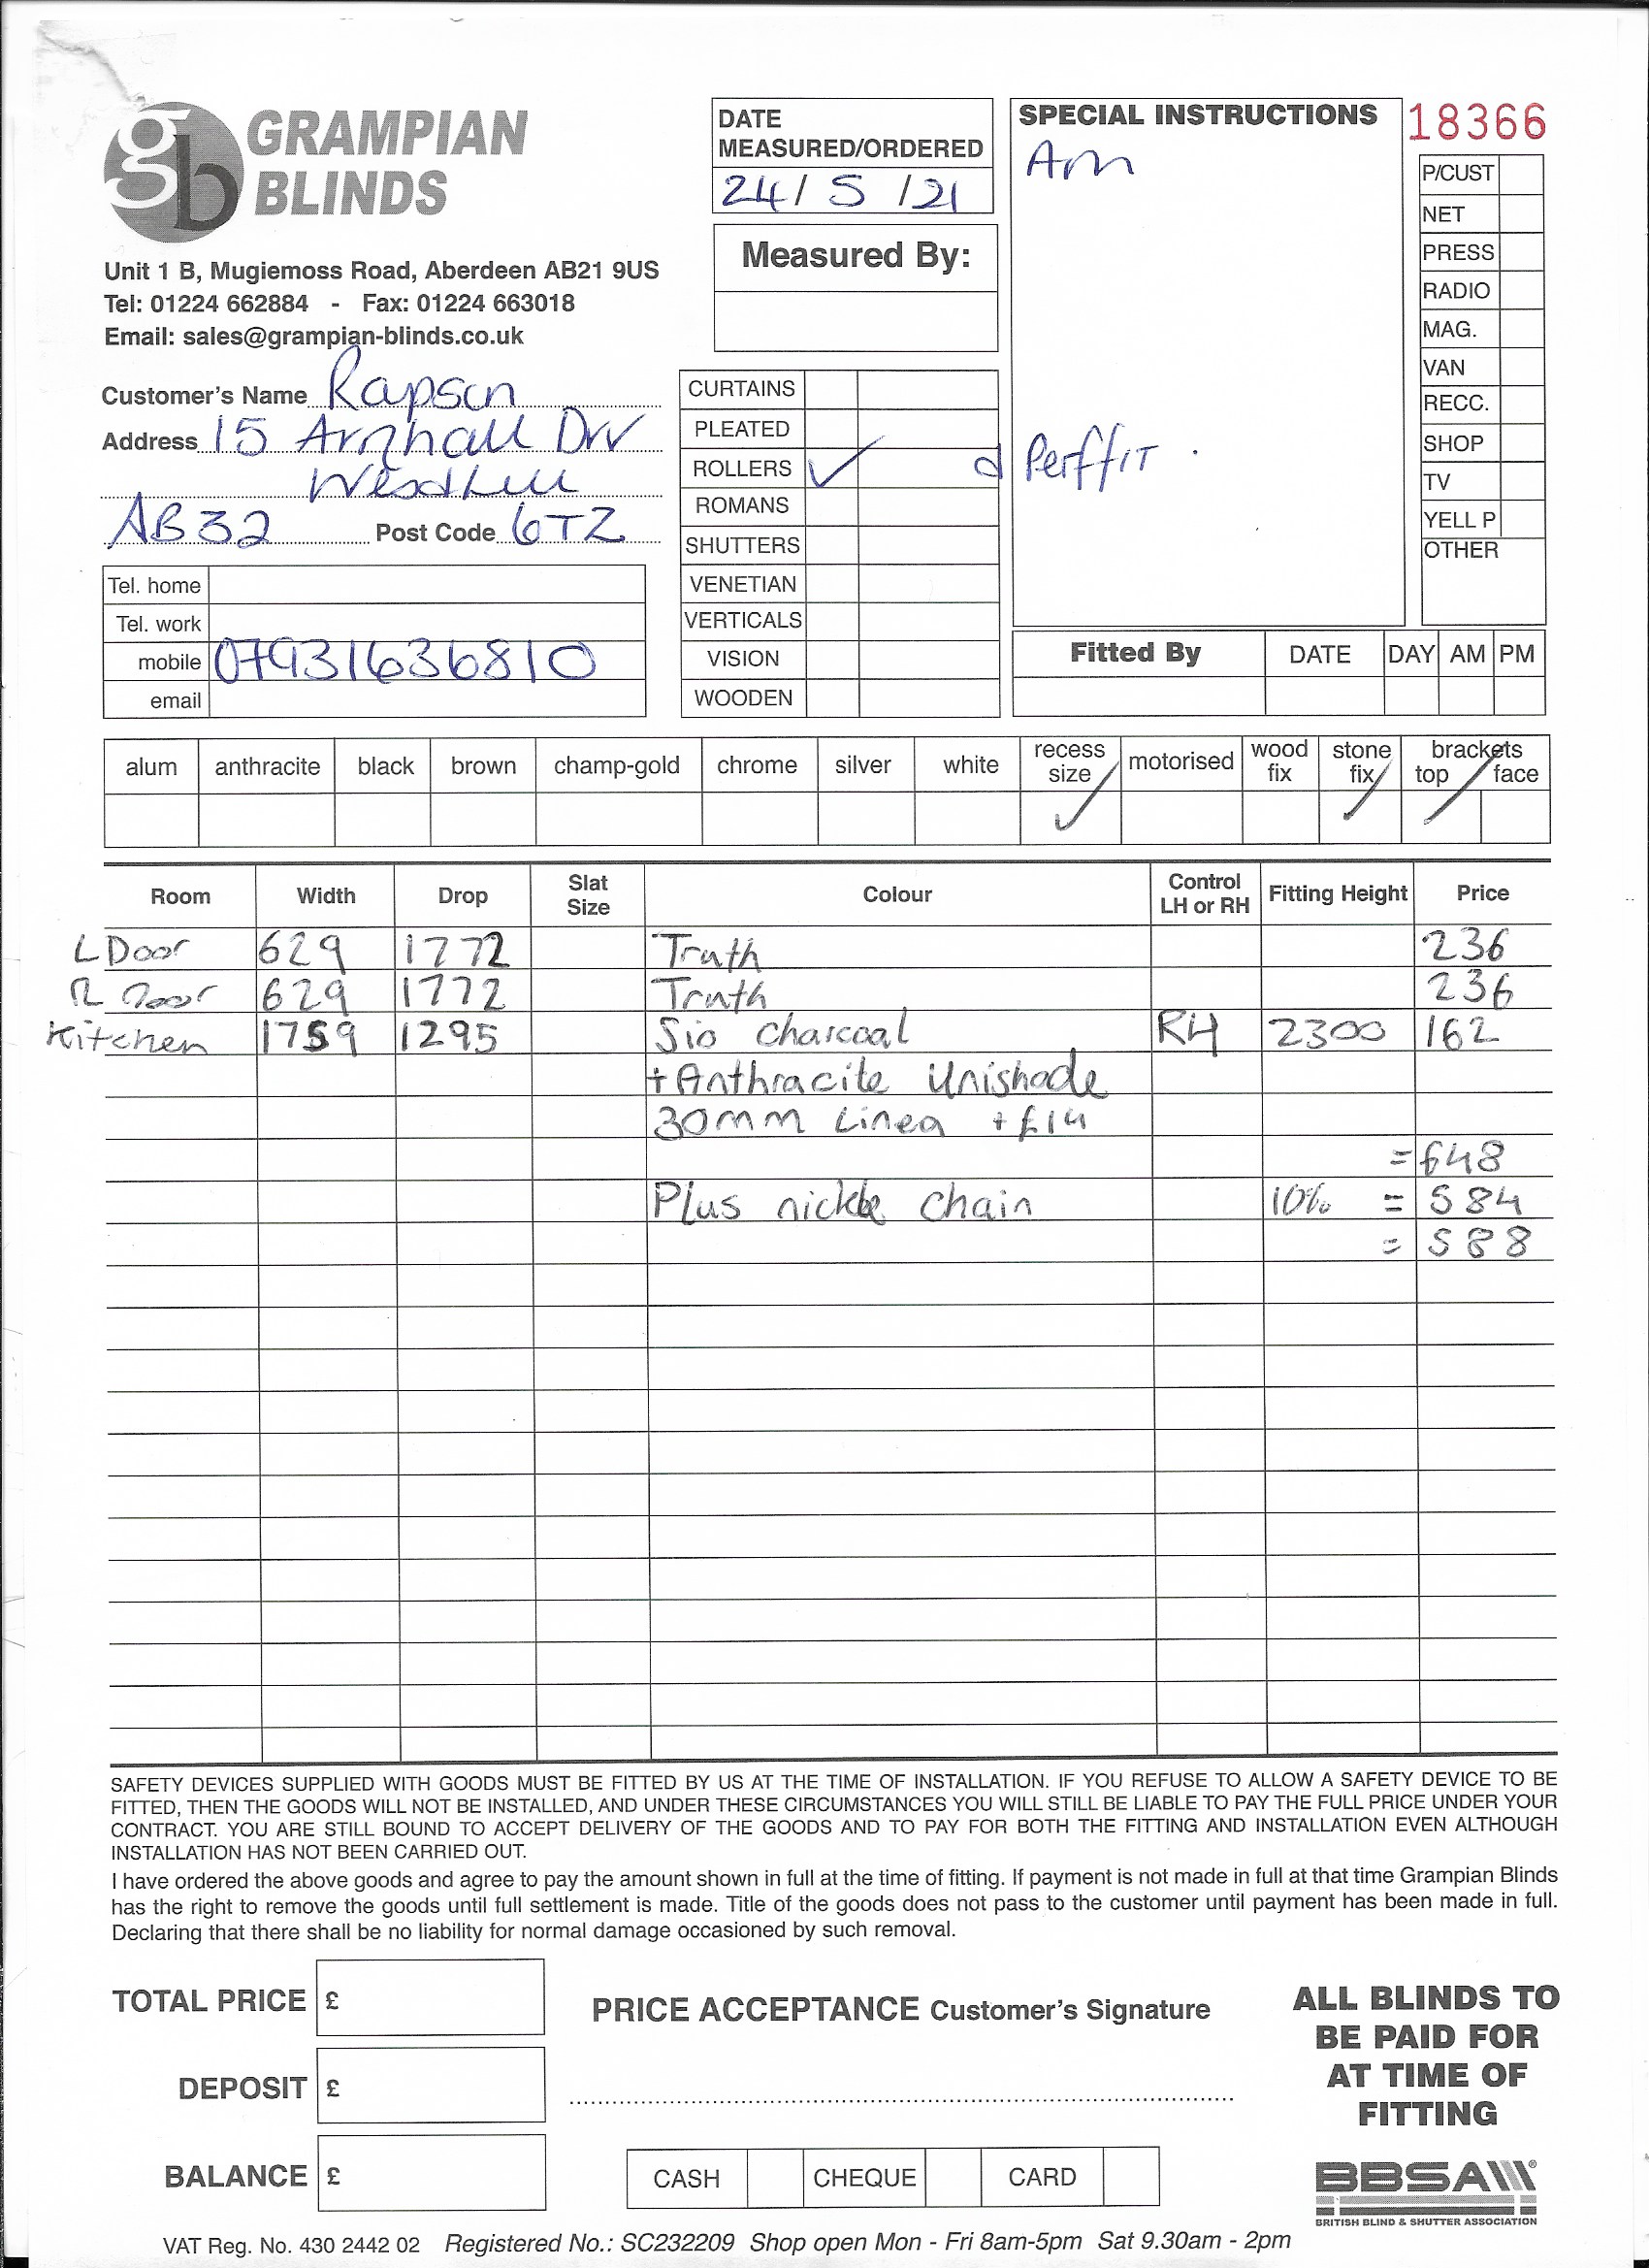 gb GRAMPIAN
BLINDS
Unit 1 B, Mugiemoss Road, Aberdeen AB21 9US
Tel: 01224 662884 - Fax: 01224 663018
Email: sales@grampian-blinds.co.uk
Customer's Name Rapson
Address 15 Arnhall Drv
Westhill
AB32 Post Code 6TZ
Tel. home
Tel. work
mobile 07931636810
email
DATE
MEASURED/ORDERED
24/ 5 /21
Measured By:
CURTAINS
PLEATED
ROLLERS ✓
ROMANS
SHUTTERS
VENETIAN
VERTICALS
VISION
WOODEN
SPECIAL INSTRUCTIONS
Am
Perffit.
18366
P/CUST
NET
PRESS
RADIO
MAG.
VAN
RECC.
SHOP
TV
YELL P
OTHER
Fitted By DATE DAY AM PM
alum anthracite black brown champ-gold chrome silver white recess size motorised wood fix stone fix brackets top face
✓ ✓ ✓
Room Width Drop Slat Size Colour Control LH or RH Fitting Height Price
L Door 629 1772 Truth 236
R Door 629 1772 Truth 236
Kitchen 1759 1295 Sio Charcoal RH 2300 162
+ Anthracite Unishade
30mm Linea + £14
= 648
Plus nickle chain 10% = 584
= 588
SAFETY DEVICES SUPPLIED WITH GOODS MUST BE FITTED BY US AT THE TIME OF INSTALLATION. IF YOU REFUSE TO ALLOW A SAFETY DEVICE TO BE
FITTED, THEN THE GOODS WILL NOT BE INSTALLED, AND UNDER THESE CIRCUMSTANCES YOU WILL STILL BE LIABLE TO PAY THE FULL PRICE UNDER YOUR
CONTRACT. YOU ARE STILL BOUND TO ACCEPT DELIVERY OF THE GOODS AND TO PAY FOR BOTH THE FITTING AND INSTALLATION EVEN ALTHOUGH
INSTALLATION HAS NOT BEEN CARRIED OUT.
I have ordered the above goods and agree to pay the amount shown in full at the time of fitting. If payment is not made in full at that time Grampian Blinds
has the right to remove the goods until full settlement is made. Title of the goods does not pass to the customer until payment has been made in full.
Declaring that there shall be no liability for normal damage occasioned by such removal.
TOTAL PRICE £
DEPOSIT £
BALANCE £
PRICE ACCEPTANCE Customer's Signature
CASH CHEQUE CARD
ALL BLINDS TO
BE PAID FOR
AT TIME OF
FITTING
BBSA
BRITISH BLIND & SHUTTER ASSOCIATION
VAT Reg. No. 430 2442 02 Registered No.: SC232209 Shop open Mon - Fri 8am-5pm Sat 9.30am - 2pm